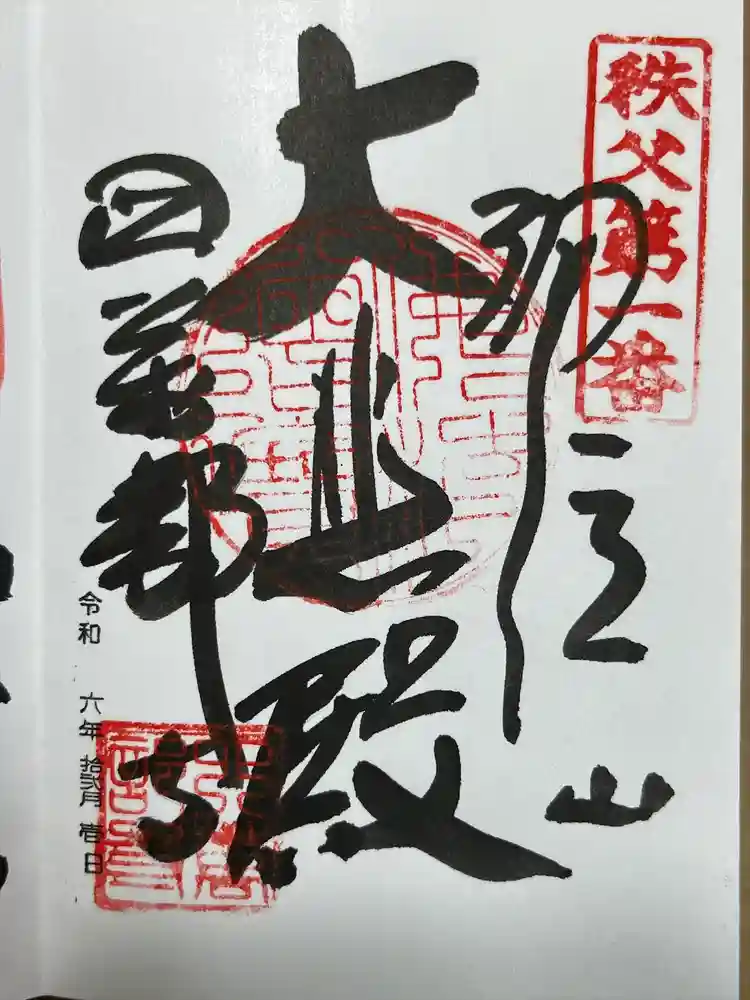 秩父第一番
誦経山
大悲殿
四萬部寺
令和 六年 拾弐月 壱日